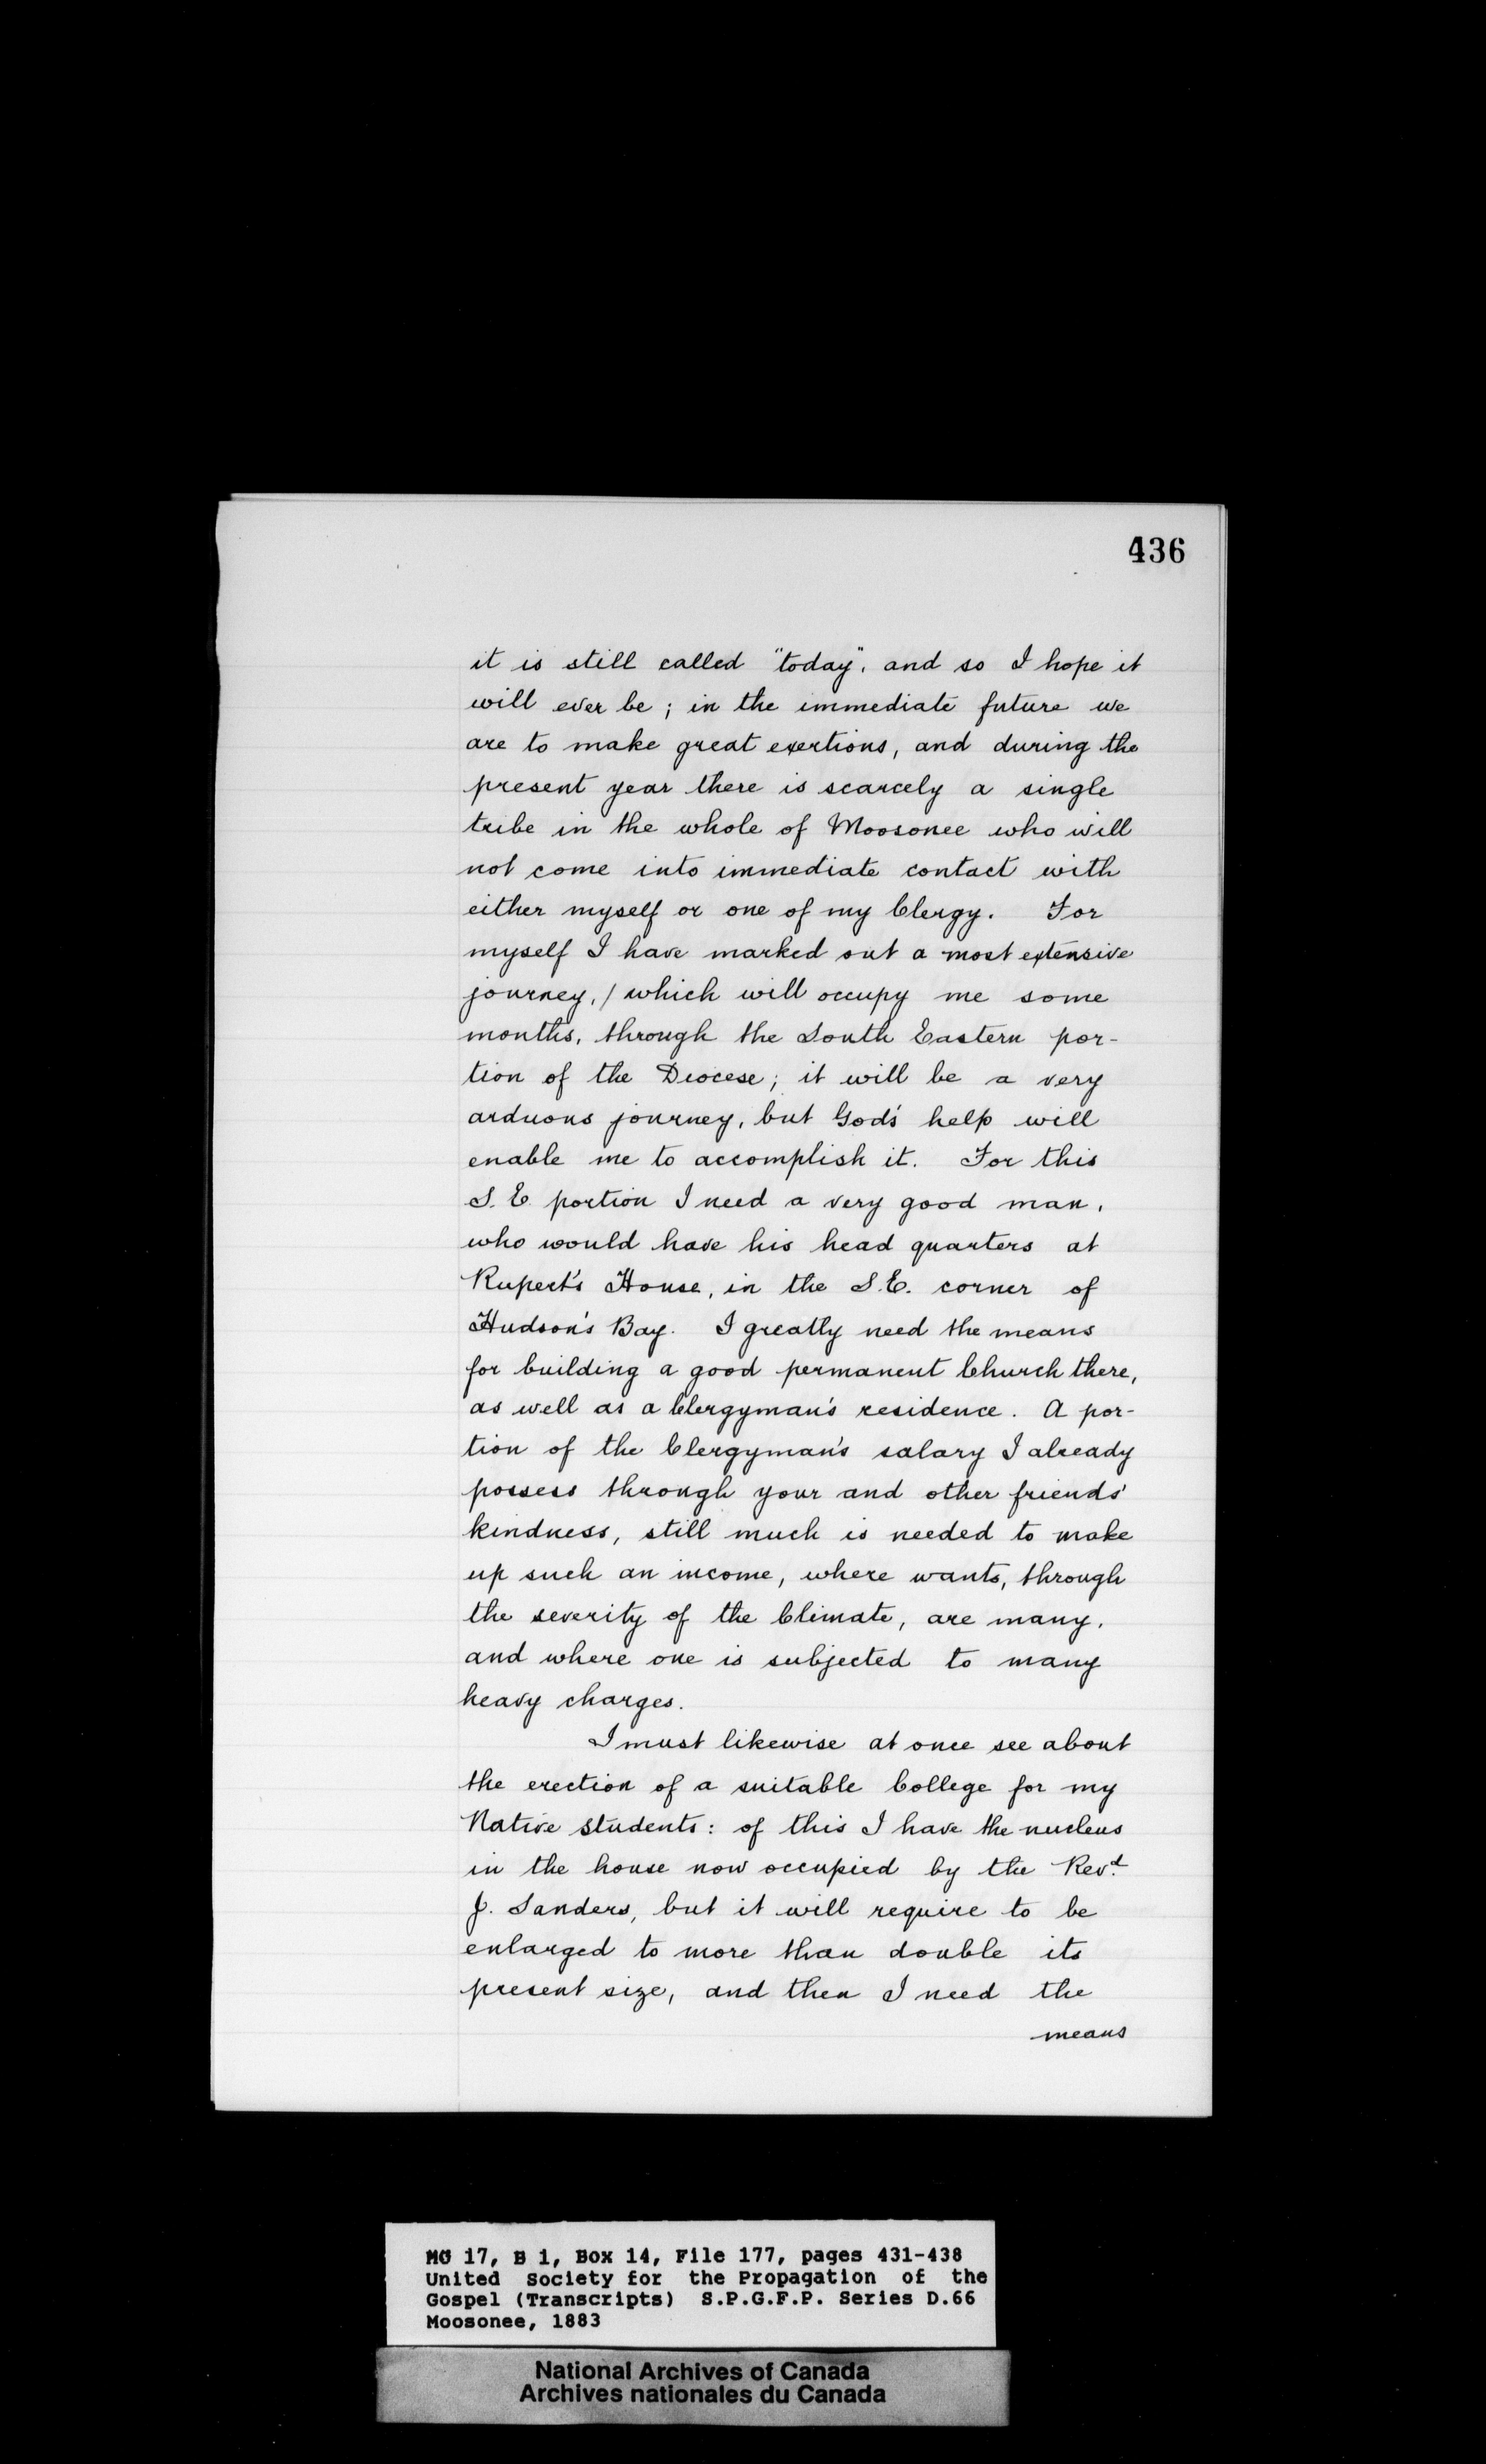 436
it is still called "today", and so I hope it
will ever be; in the immediate future we
are to make great exertions, and during the
present year there is scarcely a single
tribe in the whole of Moosonee who will
not come into immediate contact with
either myself or one of my Clergy. For
myself I have marked out a most extensive
journey, / which will occupy me some
months, through the South Eastern por-
tion of the Diocese; it will be a very
arduous journey, but God's help will
enable me to accomplish it. For this
S. E. portion I need a very good man,
who would have his head quarters at
Rupert's House, in the S.E. corner of
Hudson's Bay. I greatly need the means
for building a good permanent Church there,
as well as a Clergyman's residence. A por-
tion of the Clergyman's salary I already
possess through your and other friends'
kindness, still much is needed to make
up such an income, where wants, through
the severity of the Climate, are many,
and where one is subjected to many
heavy charges.
I must likewise at once see about
the erection of a suitable College for my
Native Students: of this I have the nucleus
in the house now occupied by the Revd.
J. Sanders, but it will require to be
enlarged to more than double its
present size, and then I need the
means
MG 17, B 1, Box 14, File 177, pages 431-438
United Society for the Propagation of the
Gospel (Transcripts) S.P.G.F.P. Series D.66
Moosonee, 1883
National Archives of Canada
Archives nationales du Canada